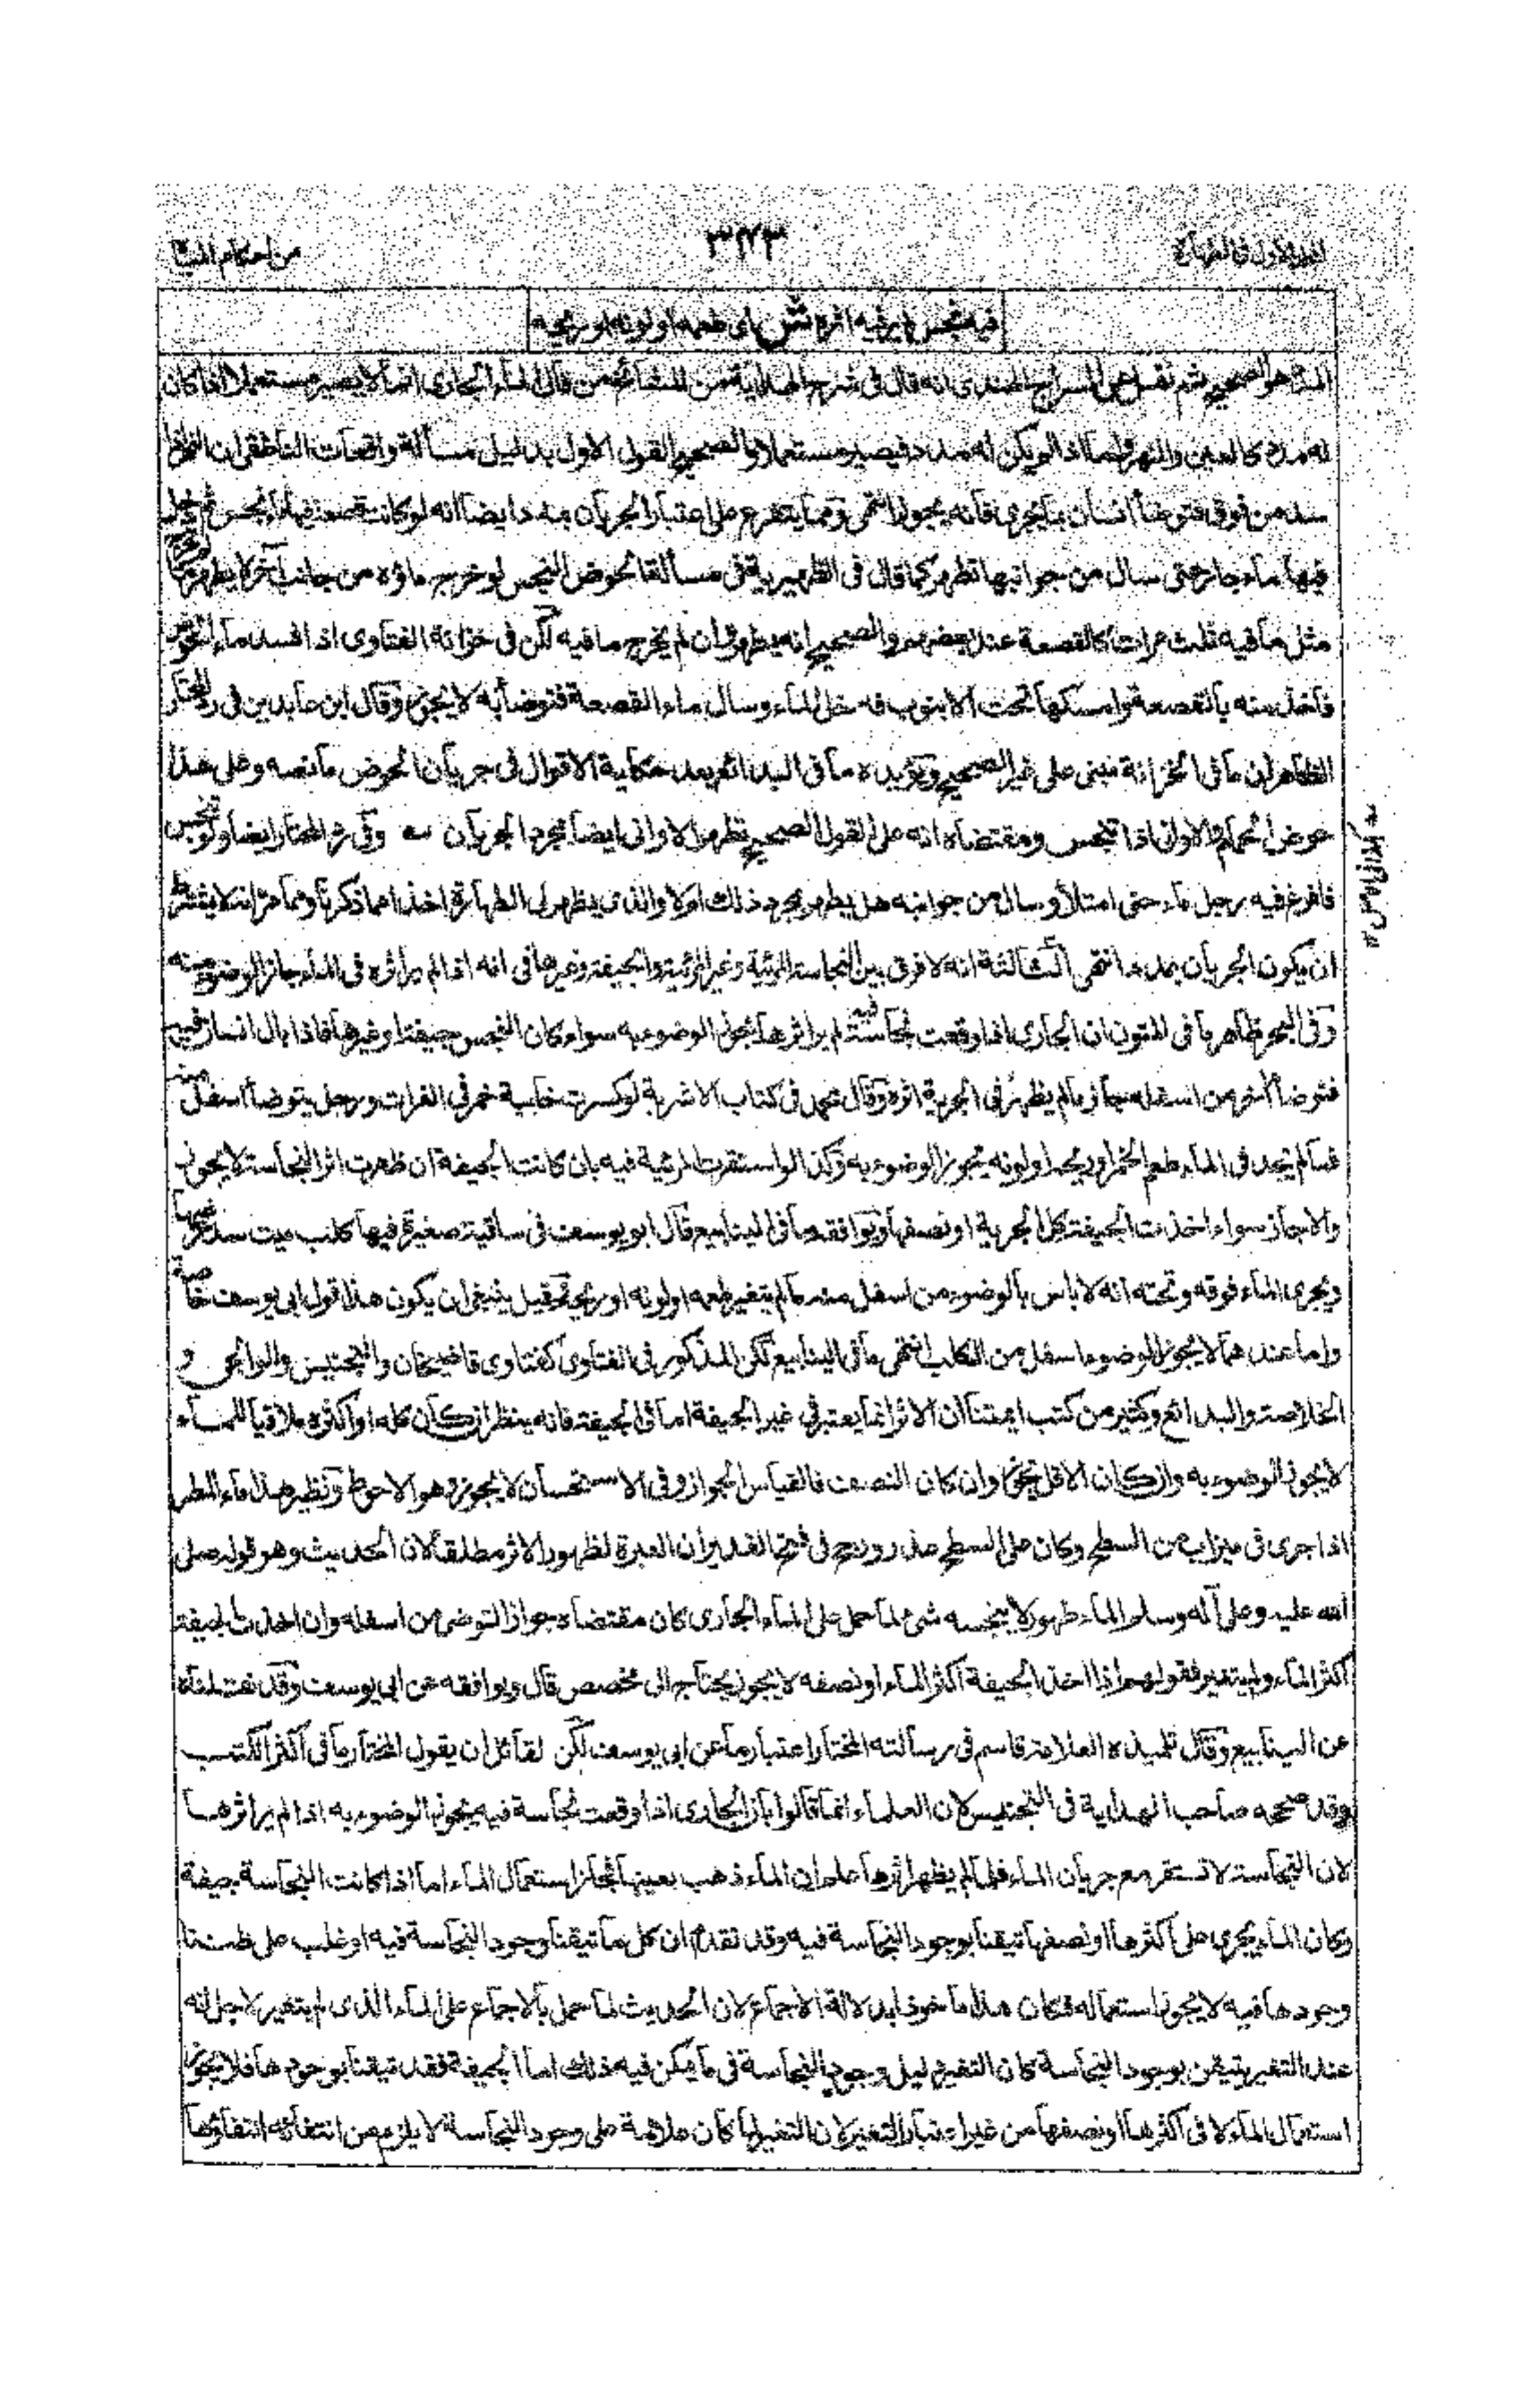 من احكام المياه ٣٤٣
فيه نجس لم ير فيه اثره ش اى طعمه او لونه او ريحه
هو الصحيح ثم نقل عن السراج الهندى انه قال فى شرح الهداية من المشائخ من قال الماء الجارى انما لا يصير مستعملا اذا كان
له مدد كالعين والنهر اما اذا لم يكن له مدد فيصير مستعملا والصحيح القول الاول بدليل مسألة واقعات الناطفى ان
سد من فوق فتوضأ انسان بما يجرى فانه يجوز انتهى ومما يتفرع على اعتبار الجريان بمدد ايضا انه لو كانت قصعة فيها ماء نجس
فيها ماء جار حتى سال من جوانبها تطهر كما قال فى الظهيرية فى مسألة الحوض النجس لو خرج ماؤه من جانب آخر لا يطهر
مثل ما فيه ثلث مرات كالقصعة عند بعضهم والصحيح انه يطهر وان لم يخرج ما فيه لكن فى خزانة الفتاوى اذا افسد ماء
فاخذ منه بالقصعة وامسكها تحت الانبوب فدخل الماء وسال ماء القصعة فتوضأ به لا يجوز وقال ابن عابدين فى رد المحتار
الظاهر ان ما فى الخزانة مبنى على غير الصحيح ويؤيده ما فى البدائع بعد حكاية الاقوال فى جريان الحوض ما نصه وعلى هذا
حوض الحمام او الاوانى اذا تنجس ومقتضاه انه على القول الصحيح تطهر الاوانى ايضا بمجرد الجريان وفى رد المحتار ايضا
فافرغ فيه رجل ماء حتى امتلأ وسال من جوانبه هل يطهر بمجرد ذلك ام لا والذى يظهر لى الطهارة اخذا مما ذكرنا ومما مر انه لا يشترط
ان يكون الجريان بمدد انتهى الثالثة انه لا فرق بين النجاسة المرئية وغير المرئية والجيفة وغيرها فى انه اذا لم ير اثره فى الماء جاز الوضوء منه
وفى البحر ظاهر ما فى المتون ان الجارى اذا وقعت فيه نجاسة لم ير اثرها يجوز الوضوء به سواء كان النجس جيفة او غيرها فاذا بال انسان فيه
فتوضأ آخر من اسفله جاز ما لم يظهر فى الجرية اثره وقال محمد فى كتاب الاشربة لو كسرت خابية خمر فى الفرات ورجل يتوضأ اسفل منه
فما لم يجد فى الماء طعم الخمر او ريحه او لونه يجوز الوضوء به وكذا لو استقرت المرئية فيه بان كانت الجيفة ان ظهرت اثر النجاسة لا يجوز
والا جاز سواء اخذت الجيفة كل الجرية او نصفها ويوافقه ما فى الينابيع قال ابو يوسف فى ساقية صغيرة فيها كلب ميت سد عرضها
ويجرى الماء فوقه وتحته انه لا باس بالوضوء من اسفل منه ما لم يتغير طعمه او لونه او ريحه قيل ينبغى ان يكون هذا قول ابى يوسف خاصة
واما عندهما لا يجوز الوضوء اسفل من الكلب انتهى ما فى الينابيع لكن المذكور فى الفتاوى كفتاوى قاضيخان والتجنيس والولوالجى و
الخلاصة والبدائع وكثير من كتب ايمتنا ان الاثر انما يعتبر فى غير الجيفة اما فى الجيفة فانه ينظر ان كان كله او اكثره ملاقيا للماء
لا يجوز الوضوء به وان كان الاقل يجوز وان كان النصف فالقياس الجواز وفى الاستحسان لا يجوز وهو الاحوط ونظير هذا ماء المطر
اذا جرى فى ميزاب من السطح وكان على السطح عذرة ورجح فى فتح القدير ان العبرة لظهور الاثر مطلقا لان الحديث وهو قوله صلى
الله عليه وعلى آله وسلم الماء طهور لا ينجسه شئ لما حمل على الماء الجارى كان مقتضاه جواز التوضى من اسفله وان اخذت الجيفة
اكثر الماء ولم يتغير فقولهم اذا اخذ الجيفة اكثر الماء او نصفه لا يجوز يحتاج الى مخصص قال ويوافقه عن ابى يوسف وقد نقلناه
عن الينابيع وقال تلميذه العلامة قاسم فى رسالته المختار اعتبار ما عن ابى يوسف لكن لقائل ان يقول المختار ما فى اكثر الكتب
وقد صححه صاحب الهداية فى التجنيس لان العلماء انما قالوا بان الجارى اذا وقعت نجاسة فيه يجوز الوضوء به اذا لم ير اثرها
لان النجاسة لا تستقر مع جريان الماء فلما لم يظهر اثرها علم ان الماء ذهب بعينها فجاز استعمال الماء اما اذا كانت النجاسة جيفة
وكان الماء يجرى على اكثرها او نصفها تيقنا بوجود النجاسة فيه وقد تقدم ان كل ما تيقنا وجود النجاسة فيه او غلب على ظننا
وجودها فيه لا يجوز استعماله فكان هذا ماخوذا بدلالة الاجماع لان الحديث لما حمل بالاجماع على الماء الذى لم يتغير لاجل انه
عند التغير يتيقن بوجود النجاسة كان التغير دليل وجود النجاسة فى ما يمكن فيه ذلك اما الجيفة فقد تيقنا بوجودها فلا يجوز
استعمال الماء لا فى اكثرها او نصفها من غير اعتبار التغير لان التغير لما كان علامة على وجود النجاسة لا يلزم من انتفائه انتفاؤها